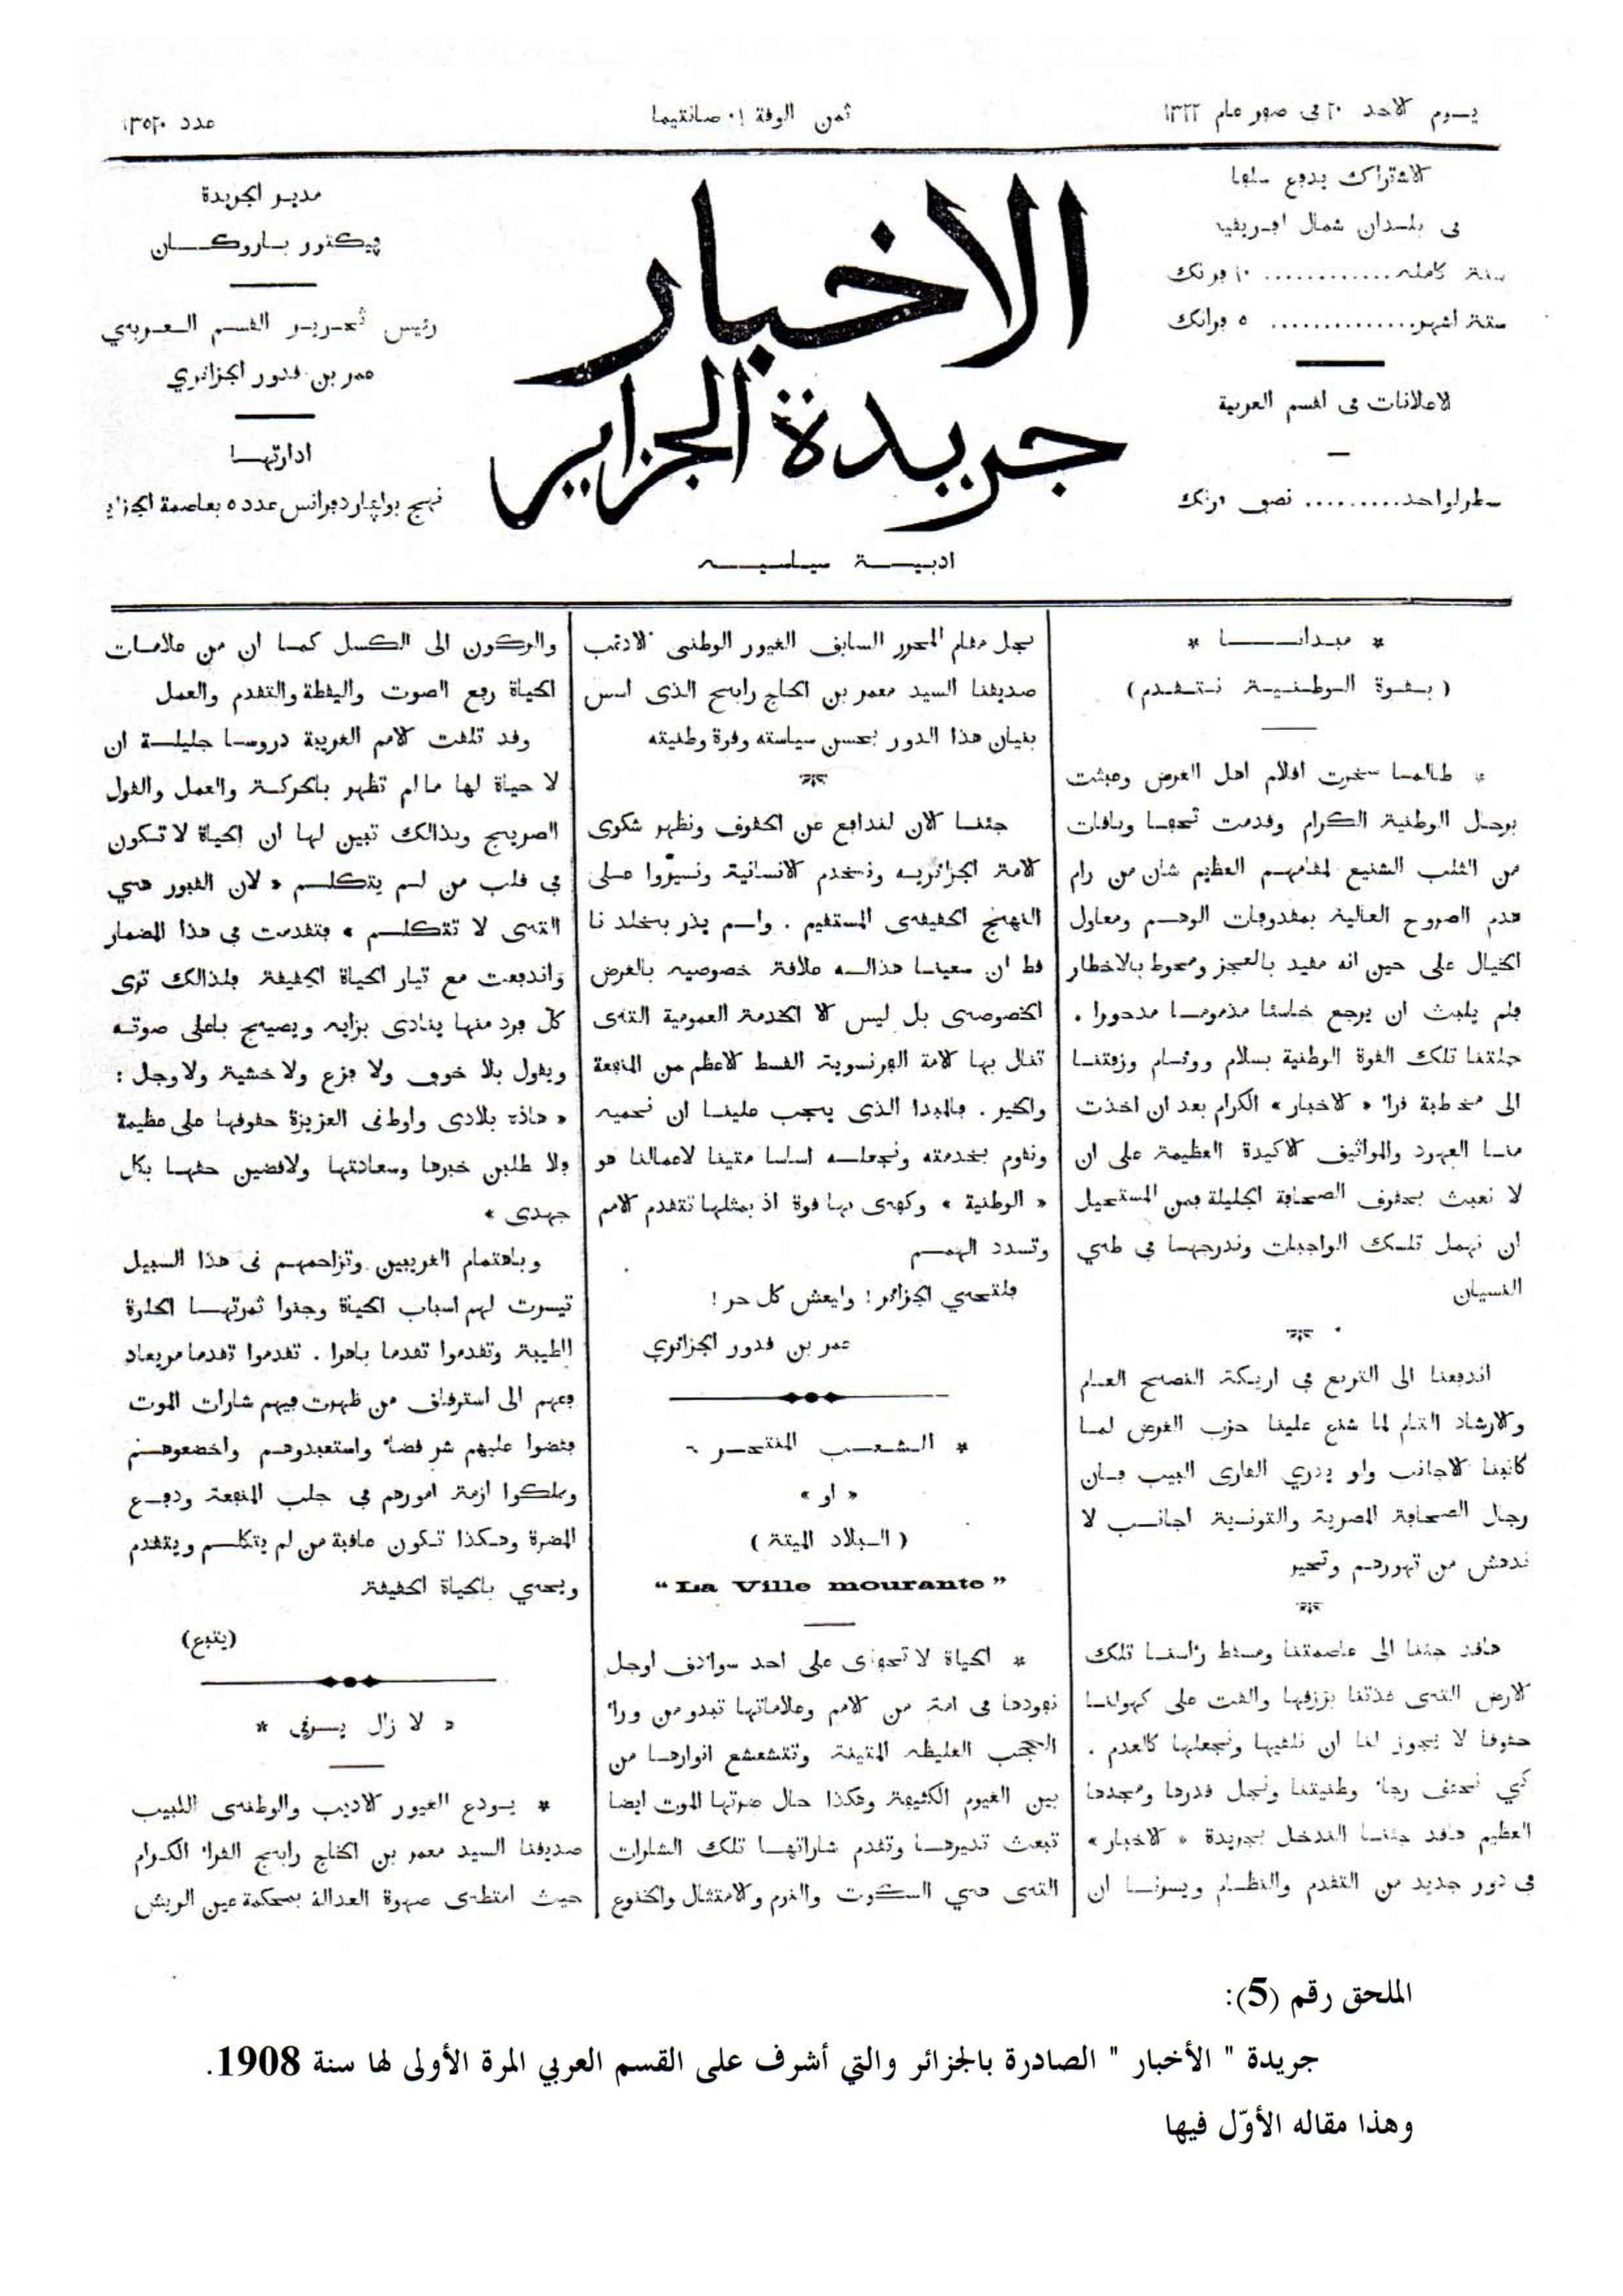 يوم الاحد ٢٠ في صفر عام ١٣٢٢
ثمن الورقة ١٠ صانتيما
عدد ١٣٥٢٠
الاشتراك يدفع سلفا
في بلدان شمال افريقيه
سنة كاملة............ ١٠ فرنك
ستة اشهر.............. ٥ فرانك
الاعلانات في القسم العربية
سطر لواحد......... نصف فرنك
الاخبار
جريدة الجزاير
ادبية سياسية
مدير الجريدة
ڢيكتور باروكان
رئيس تحرير القسم العربي
عمر بن قدور الجزائري
ادارتها
نهج بوليڢار دفرانس عدد ٥ بعاصمة الجزاير
* مبدانا *
(بقوة الوطنية نتقدم)
* طالما سخرت اقلام اهل الغرض وعبثت
برجال الوطنية الكرام وقدمت تحفا وباقات
من الثلب الشنيع لمقامهم العظيم شان من رام
هدم الصروح العالية بمقذوفات الوهم ومعاول
الخيال على حين انه مقيد بالعجز ومحوط بالاخطار
فلم يلبث ان يرجع خاسئا مذموما مدحورا .
جئتنا تلك القوة الوطنية بسلام ووئام وزفتنا
الى مخطبة قرا° « الاخبار » الكرام بعد ان اخذت
منا العهود والمواثيق الاكيدة العظيمة على ان
لا نعبث بحقوق الصحافة الجليلة فمن المستحيل
ان نهمل تلك الواجبات وندرجها في طي
النسيان
اندفعنا الى التربع في اريكة النصح العام
والارشاد التام لما شنع علينا حزب الغرض لما
كاتبنا الاجانب ولو يدري القارى البيب فان
رجال الصحافة المصرية والتونسية اجانب لا
ندهش من تهورهم وتحير
هاقد جئنا الى عاصمتنا ومسقط راسنا تلك
الارض التي غذتنا برزقها والقت على كهولنا
حقوقا لا يجوز لنا ان نلغيها ونجعلها كالعدم .
كي نحقق رجا° وطنيتنا ونجل قدرها ومجدها
العظيم هاقد جئنا لندخل بجريدة « الاخبار »
في دور جديد من التقدم والنظام ويسرنا ان
نجل مقام المحرر السابق الغيور الوطني الاديب
صديقنا السيد معمر بن الحاج رابح الذي اسس
بنيان هذا الدور بحسن سياسته وقوة وطنيته
جئنا الان لندافع عن الحقوق ونظهر شكوى
الامة الجزائرية ونخدم الانسانية ونسيروا على
النهج الحقيقي المستقيم . ولم يذر بخلد نا
قط ان سعينا هذاله علاقة خصوصيه بالغرض
الخصوصي بل ليس الا الخدمة العمومية التي
تنال بها الامة الفرنسوية القسط الاعظم من المنفعة
والخير . فالمبدا الذي يجب علينا ان نحميه
ونقوم بخدمته ونجعله اساسا متينا لاعمالنا هو
« الوطنية » وكفى بها قوة اذ بمثلها تتقدم الامم
وتسدد الهمم
فلتحي الجزائر ! وليعش كل حر !
عمر بن قدور الجزائري
* الشعب المنتحر *
« او »
(البلاد الميتة)
“La Ville mourante”
* الحياة لا تخفى على احد سوائق اوجل
نفوذها في امة من الامم وعلاماتها تبدو من ورا°
الحجب الغليظه المتينة وتتشعشع انوارها من
بين الغيوم الكثيفة وهكذا حال ضرتها الموت ايضا
تبعث نذيرها وتقدم شاراتها تلك الشارات
التي هي السكوت والنوم والامتثال والخنوع
والركون الى الكسل كما ان من علامات
الحياة رفع الصوت واليقظة والتقدم والعمل
وقد تلقت الامم الغربية دروسا جليلة ان
لا حياة لها مالم تظهر بالحركة والعمل والقول
الصريح وبذالك تبين لها ان الحياة لا تكون
في قلب من لم يتكلم « لان القبور هي
التي لا تتكلم » فتقدمت في هذا المضمار
واندفعت مع تيار الحياة الحقيقة فلذالك ترى
كل فرد منها ينادى برايه ويصيح باعلى صوته
ويقول بلا خوف ولا فزع ولا خشية ولا وجل :
« هاذه بلادى واوطنى العزيزة حقوقها على عظيمة
فلا طلبن خيرها وسعادتها ولاقضين حقها بكل
جهدى »
وباهتمام الغربيين وتزاحمهم في هذا السبيل
تيسرت لهم اسباب الحياة وجنوا ثمرتها الحلوة
الطيبة وتقدموا تقدما باهرا . تقدموا تقدما مريعاد
فعهم الى استرقاق من ظهرت فيهم شارات الموت
فقضوا عليهم شر قضا° واستعبدوهم واخضعوهم
وملكوا ازمة امورهم في جلب المنفعة ودفع
المضرة وهكذا تكون عاقبة من لم يتكلم ويتقدم
ويحي بالحياة الحقيقة
(يتبع)
« لا زال يرقي *
* يودع الغيور الاديب والوطني اللبيب
صديقنا السيد معمر بن الحاج رابح القرا° الكرام
حيث امتطى صهوة العدالة بمحكمة عين الريش
الملحق رقم (5):
جريدة " الأخبار " الصادرة بالجزائر والتي أشرف على القسم العربي المرة الأولى لها سنة 1908.
وهذا مقاله الأوّل فيها